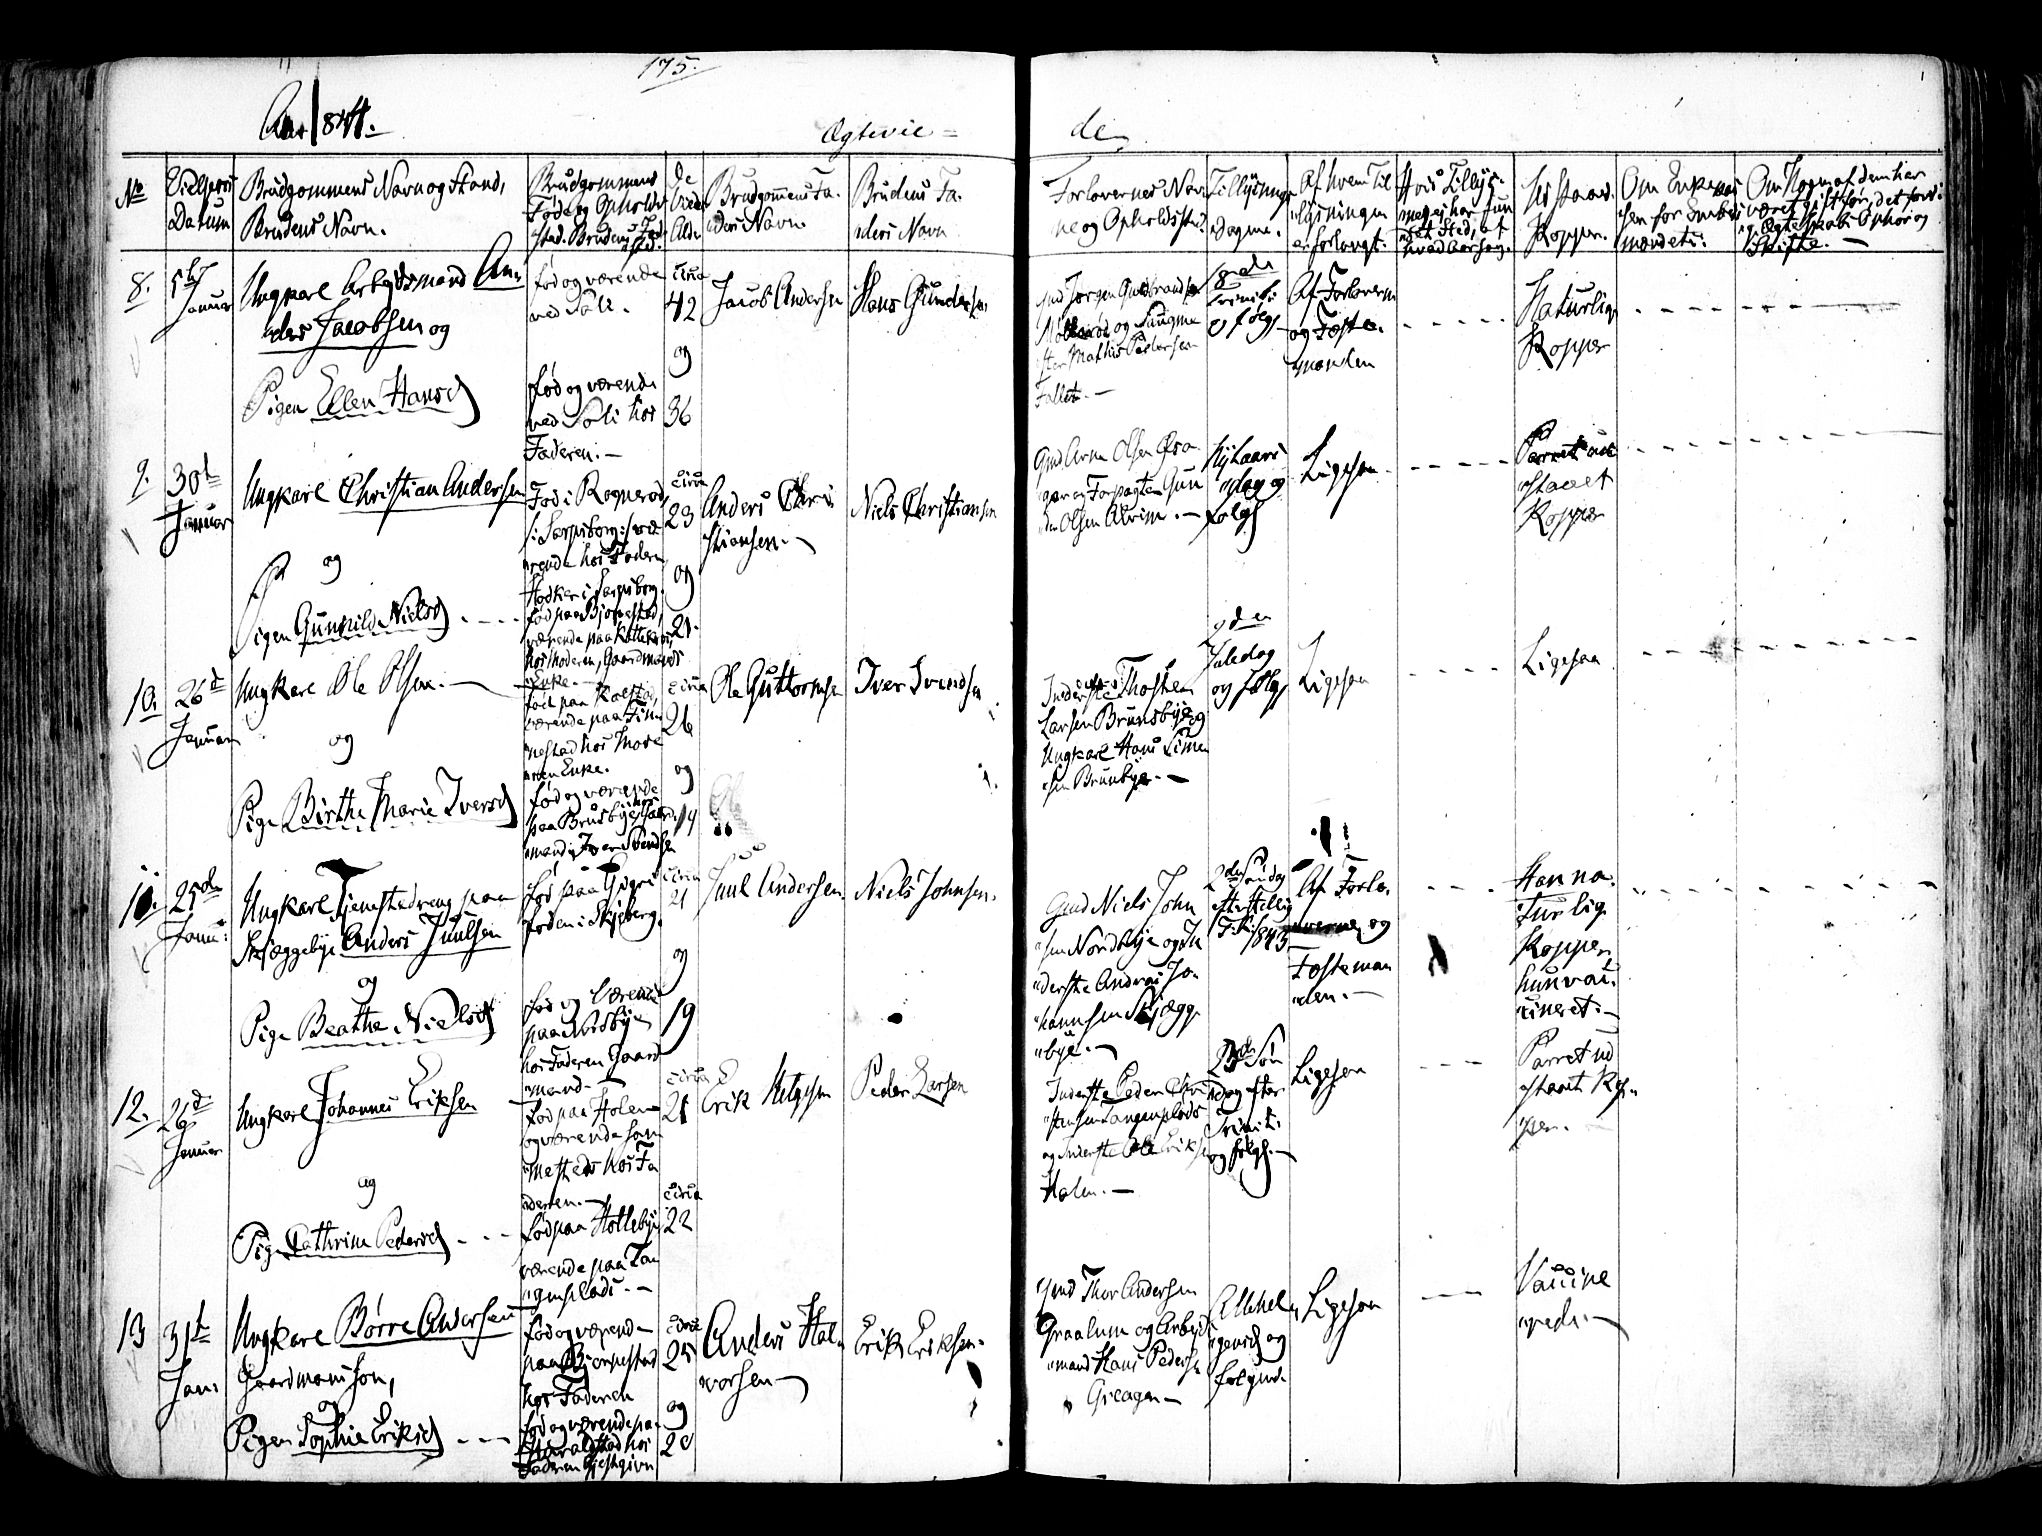 175.
Aar 1844.
Ægtevie=
de
No
Vielsens
Datum
Brudgommens Navn og Stand,
Brudens Navn.
Brudgommens
Føde og Opholds
sted. Brudens
De
Viedes
Alder
Brudgommens Fa-
ders Navn.
Brudens Fa-
ders Navn
Forlovernes Nav
ne og Opholdsted
Tillysnings
Dagene.
Af hvem Til
lysningen
er forlangt.
Hvis Tillys-
ning ej har fun
det Sted, af
hvad Aarsag.
Koppe.
Om
mændets.
Om Nogen af dem har
været gift før, det for-
Skifte.
8.
5te
Januar
Ungkarl Arbejdsmand An-
ders Jacobsen og
Pigen Ellen Hansd
fød og værende
ved Soli.
fød og værende
ved Soli hos
Faderen.
circa
42
og
36
Jacob Andersen
Hans Gundersen
Gmd Jørgen Guldbrandsen
og Saugme
ster Mathis Pedersen
Fallet.
18de
Trinitis
og følg
Af Forloverne
og Feste-
manden
Naturlige
Kopper
9.
30te
Januar
Ungkarl Christian Andersen
og
Pigen Gunnild Nielsd
Fød i
i Sarpsborg, væ
rende hos Faderen
Høker i Sarpsborg.
fød paa Bjørnestad,
værende paa
hos Moderen, Gaardmands
Enke.
circa
23
og
21.
Anders Chri
stiansen.
Niels Christiansen
Gmd Arne Olsen
og Forpagter Gun
der Olsen
Nytaars
dag og
følg
Ligesaa
Parret ud
staaet
Kopper
10.
26de
Januar
Ungkarl Ole Olsen.
og
Pige Birthe Marie Iversd
født paa
værende paa Fin
nestad hos Mode
ren Enke.
fød og værende
paa Brunsbye hos Gaard
mand Iver Svendsen
circa
26
og
19
Ole Guttormsen
Iver Svendsen
Inderste Thosten
Larsen Brunsbye og
Ungkarl Hans Simen
sen Brunsbye.
2den
Juledag
og følg
Ligesaa
Ligesaa
11.
25de
Janu:
Ungkarl Tjenestedreng paa
Skjæggebye Anders Juulsen
og
Pige Beathe Nielsd
fød paa
i Skjeberg.
fød og værende
paa Nordbye
hos Faderen Gaard
mand.
circa
21
og
19
Juul Andersen.
Niels Johnsen.
Gmd Niels John
sen Nordbye og In
derste Andreas Jo-
hannsen Skjægge
bye.
2den Søndag
1843
Af Forlo-
verne og
Festeman
den.
Han na-
turlig
Kopper
hun vac-
cineret.
12.
26de
Januar
Ungkarl Johannes Eriksen
og
Pige Cathrine Pedersd
fød paa Holen
og værende sam
mesteds hos Fa
deren.
fød paa Hollebye
værende paa Lan
genplads.
circa
21
circa
22
Erik Helgesen
Peder Larsen
Inderste Peder Chri
stensen Langenplads
og Inderste Ole Eriksen
Holen.
23de Søn
dag efter
Trinitis
og følg.
Ligesaa
Parret ud
staaet Kop-
per.
13
31te
Jan:
Ungkarl Børre Andersen
Gaardmands Søn,
og
Pigen Sophie Eriksd
fød og værende
paa Bjørnestad
hos Faderen
fød og værende paa
hos
Faderen Gjestgiver
circa
25
og
20
Anders Hal-
vorsen
Erik Eriksen.
Gmd Thor Andersen
Graalum og Arbejds
mand Hans Pedersen
Greager
Allehel
gensd og
følgend.
Ligesaa
Vaccine
rede.